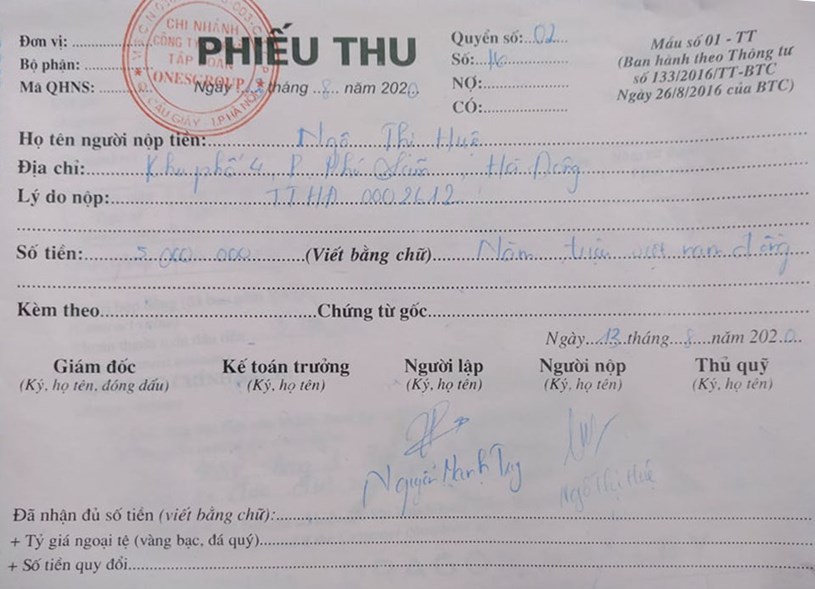 CHI NHÁNH
CÔNG TY
TẬP ĐOÀN
ONESGROUP
Q. CẦU GIẤY - T.P HÀ NỘI
Đơn vị:
Bộ phận:
Mã QHNS:
PHIẾU THU
Ngày 13 tháng 8 năm 2020
Quyển số: 02
Số: 16
NỢ:
CÓ:
Mẫu số 01 - TT
(Ban hành theo Thông tư
số 133/2016/TT-BTC
Ngày 26/8/2016 của BTC)
Họ tên người nộp tiền: Ngô Thị Huệ
Địa chỉ: Khu phố 4, P. Phú Lãm, Hà Đông
Lý do nộp: TTHĐ 0002612
Số tiền: 5 000 000 (Viết bằng chữ) Năm triệu việt nam đồng
Kèm theo Chứng từ gốc
Ngày 13 tháng 8 năm 2020
Giám đốc Kế toán trưởng Người lập Người nộp Thủ quỹ
(Ký, họ tên, đóng dấu) (Ký, họ tên) (Ký, họ tên) (Ký, họ tên) (Ký, họ tên)
Nguyễn Ngô Thị Huệ
Đã nhận đủ số tiền (viết bằng chữ):
+ Tỷ giá ngoại tệ (vàng bạc, đá quý)
+ Số tiền quy đổi